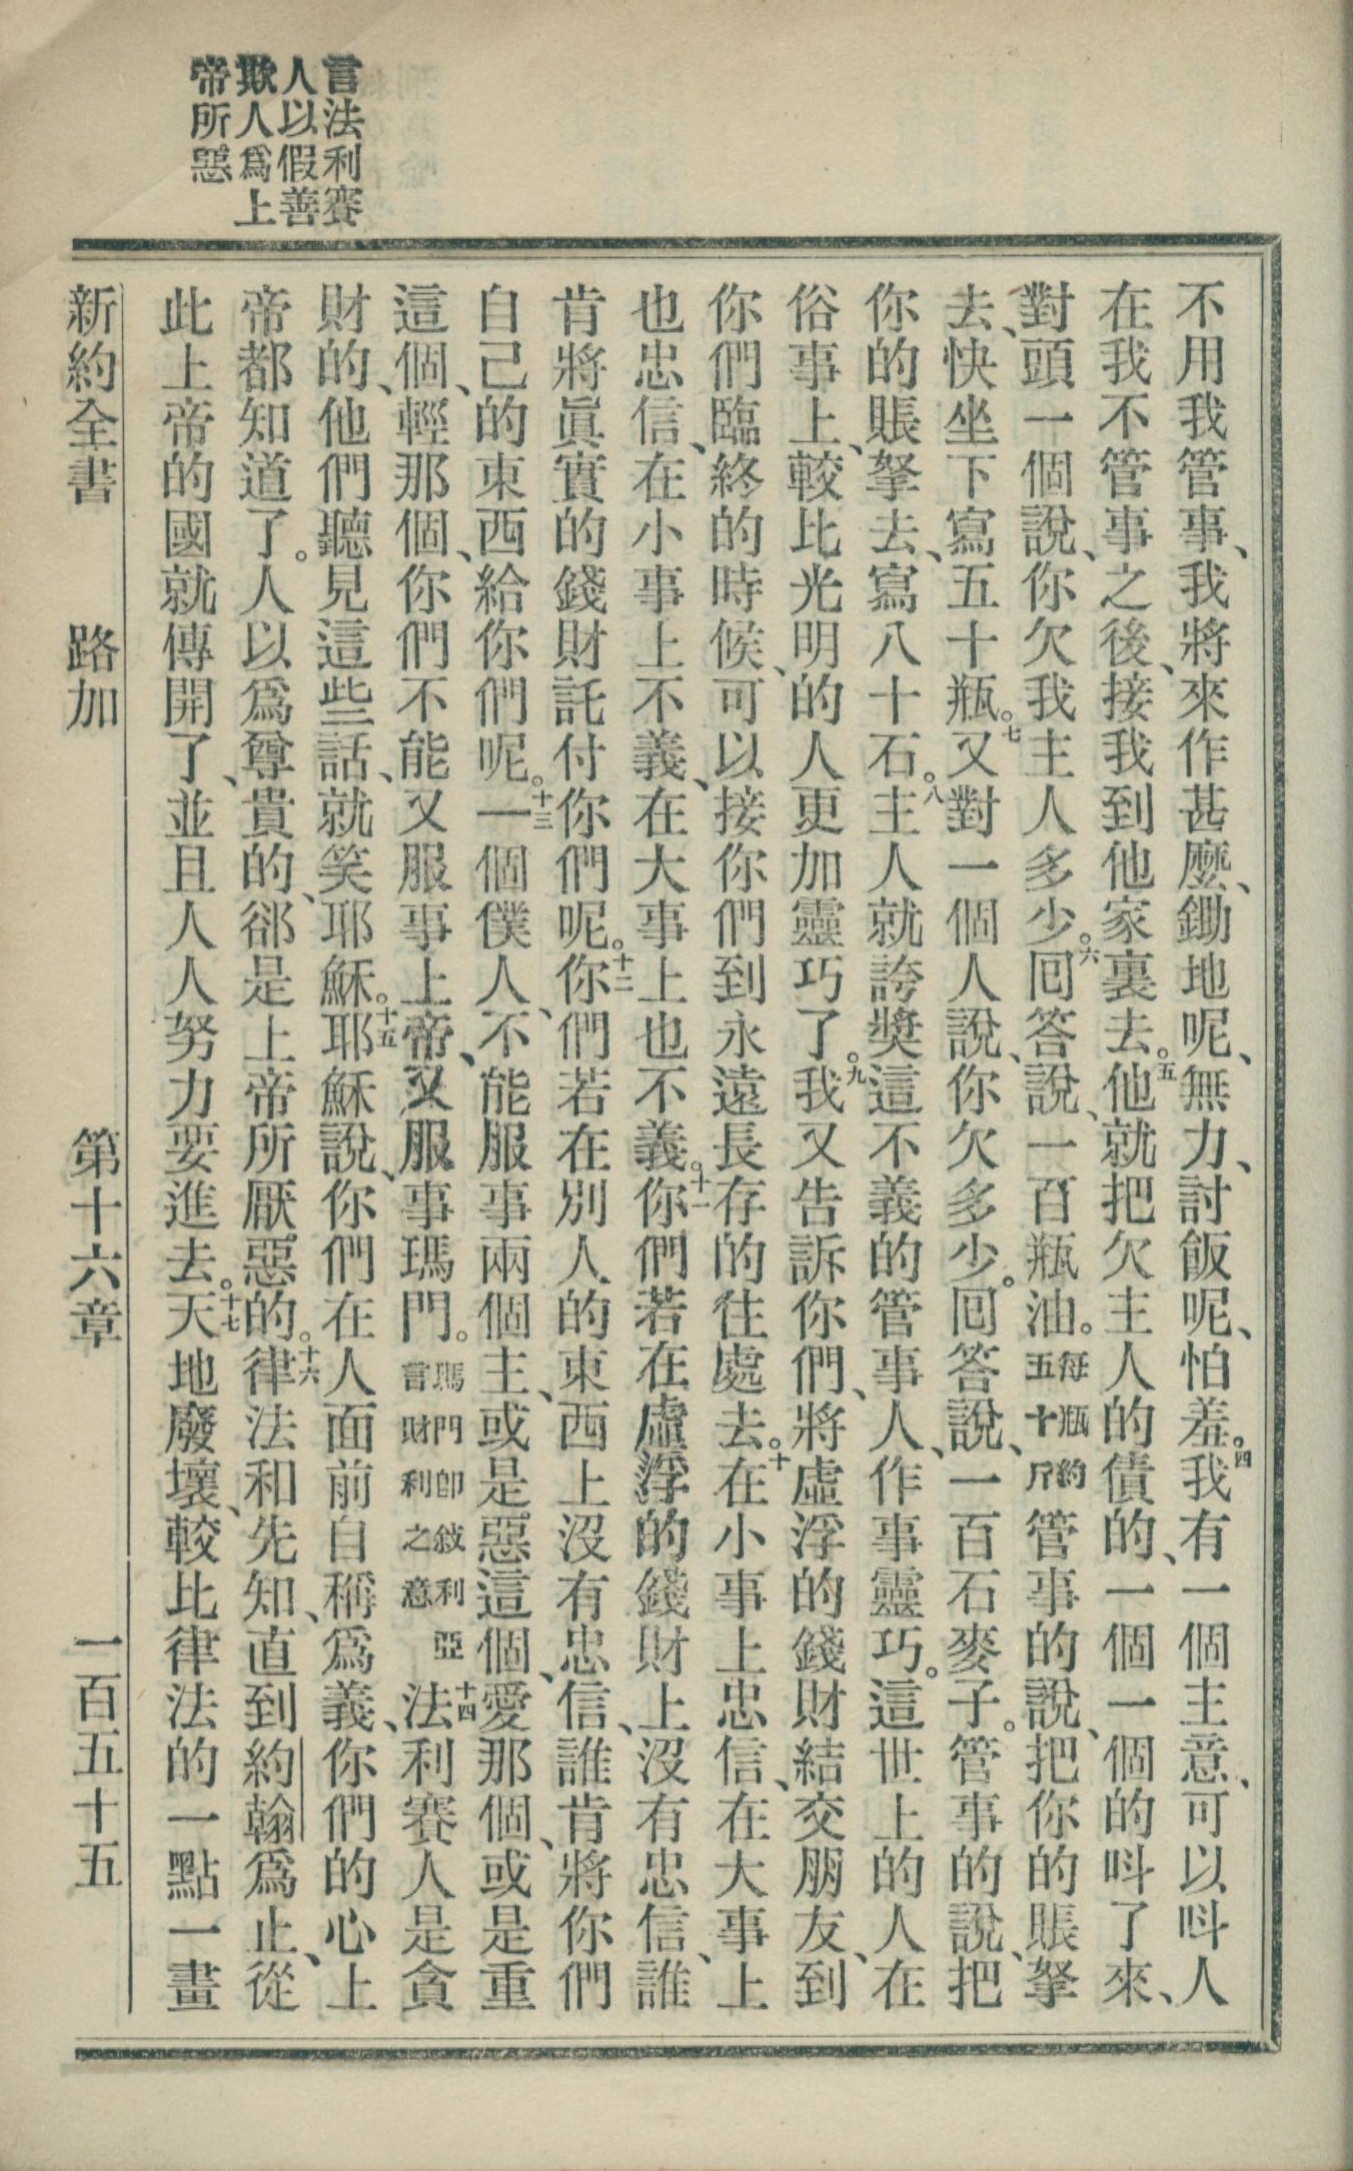 言法利賽
人以假善
欺人爲上
帝所惡
不用我管事、我將來作甚麼、鋤地呢、無力、討飯呢、怕羞。四我有一個主意、可以呌人
在我不管事之後、接我到他家裏去。五他就把欠主人的債的、一個一個的呌了來、
對頭一個說、你欠我主人多少。六囘答說、一百瓶油。每瓶約五十斤管事的說、把你的賬拏
去、快坐下寫五十瓶。七又對一個人說、你欠多少。囘答說、一百石麥子。管事的說、把
你的賬拏去、寫八十石。八主人就誇獎這不義的管事人、作事靈巧。這世上的人在
俗事上、較比光明的人更加靈巧了。九我又告訴你們、將虛浮的錢財結交朋友、到
你們臨終的時候、可以接你們到永遠長存的住處去。十在小事上忠信、在大事上
也忠信、在小事上不義、在大事上也不義。十一你們若在虛浮的錢財上沒有忠信、誰
肯將眞實的錢財託付你們呢。十二你們若在別人的東西上沒有忠信、誰肯將你們
自己的東西給你們呢。十三一個僕人、不能服事兩個主、或是惡這個、愛那個、或是重
這個、輕那個、你們不能又服事上帝、又服事瑪門。瑪門卽敍利亞言財利之意十四法利賽人是貪
財的、他們聽見這些話、就笑耶穌。十五耶穌說、你們在人面前自稱爲義、你們的心上
帝都知道了。人以爲尊貴的、郤是上帝所厭惡的。十六律法和先知、直到約翰爲止、從
此上帝的國就傳開了、並且人人努力要進去。十七天地廢壞、較比律法的一點一畫
新約全書　路加　第十六章　一百五十五